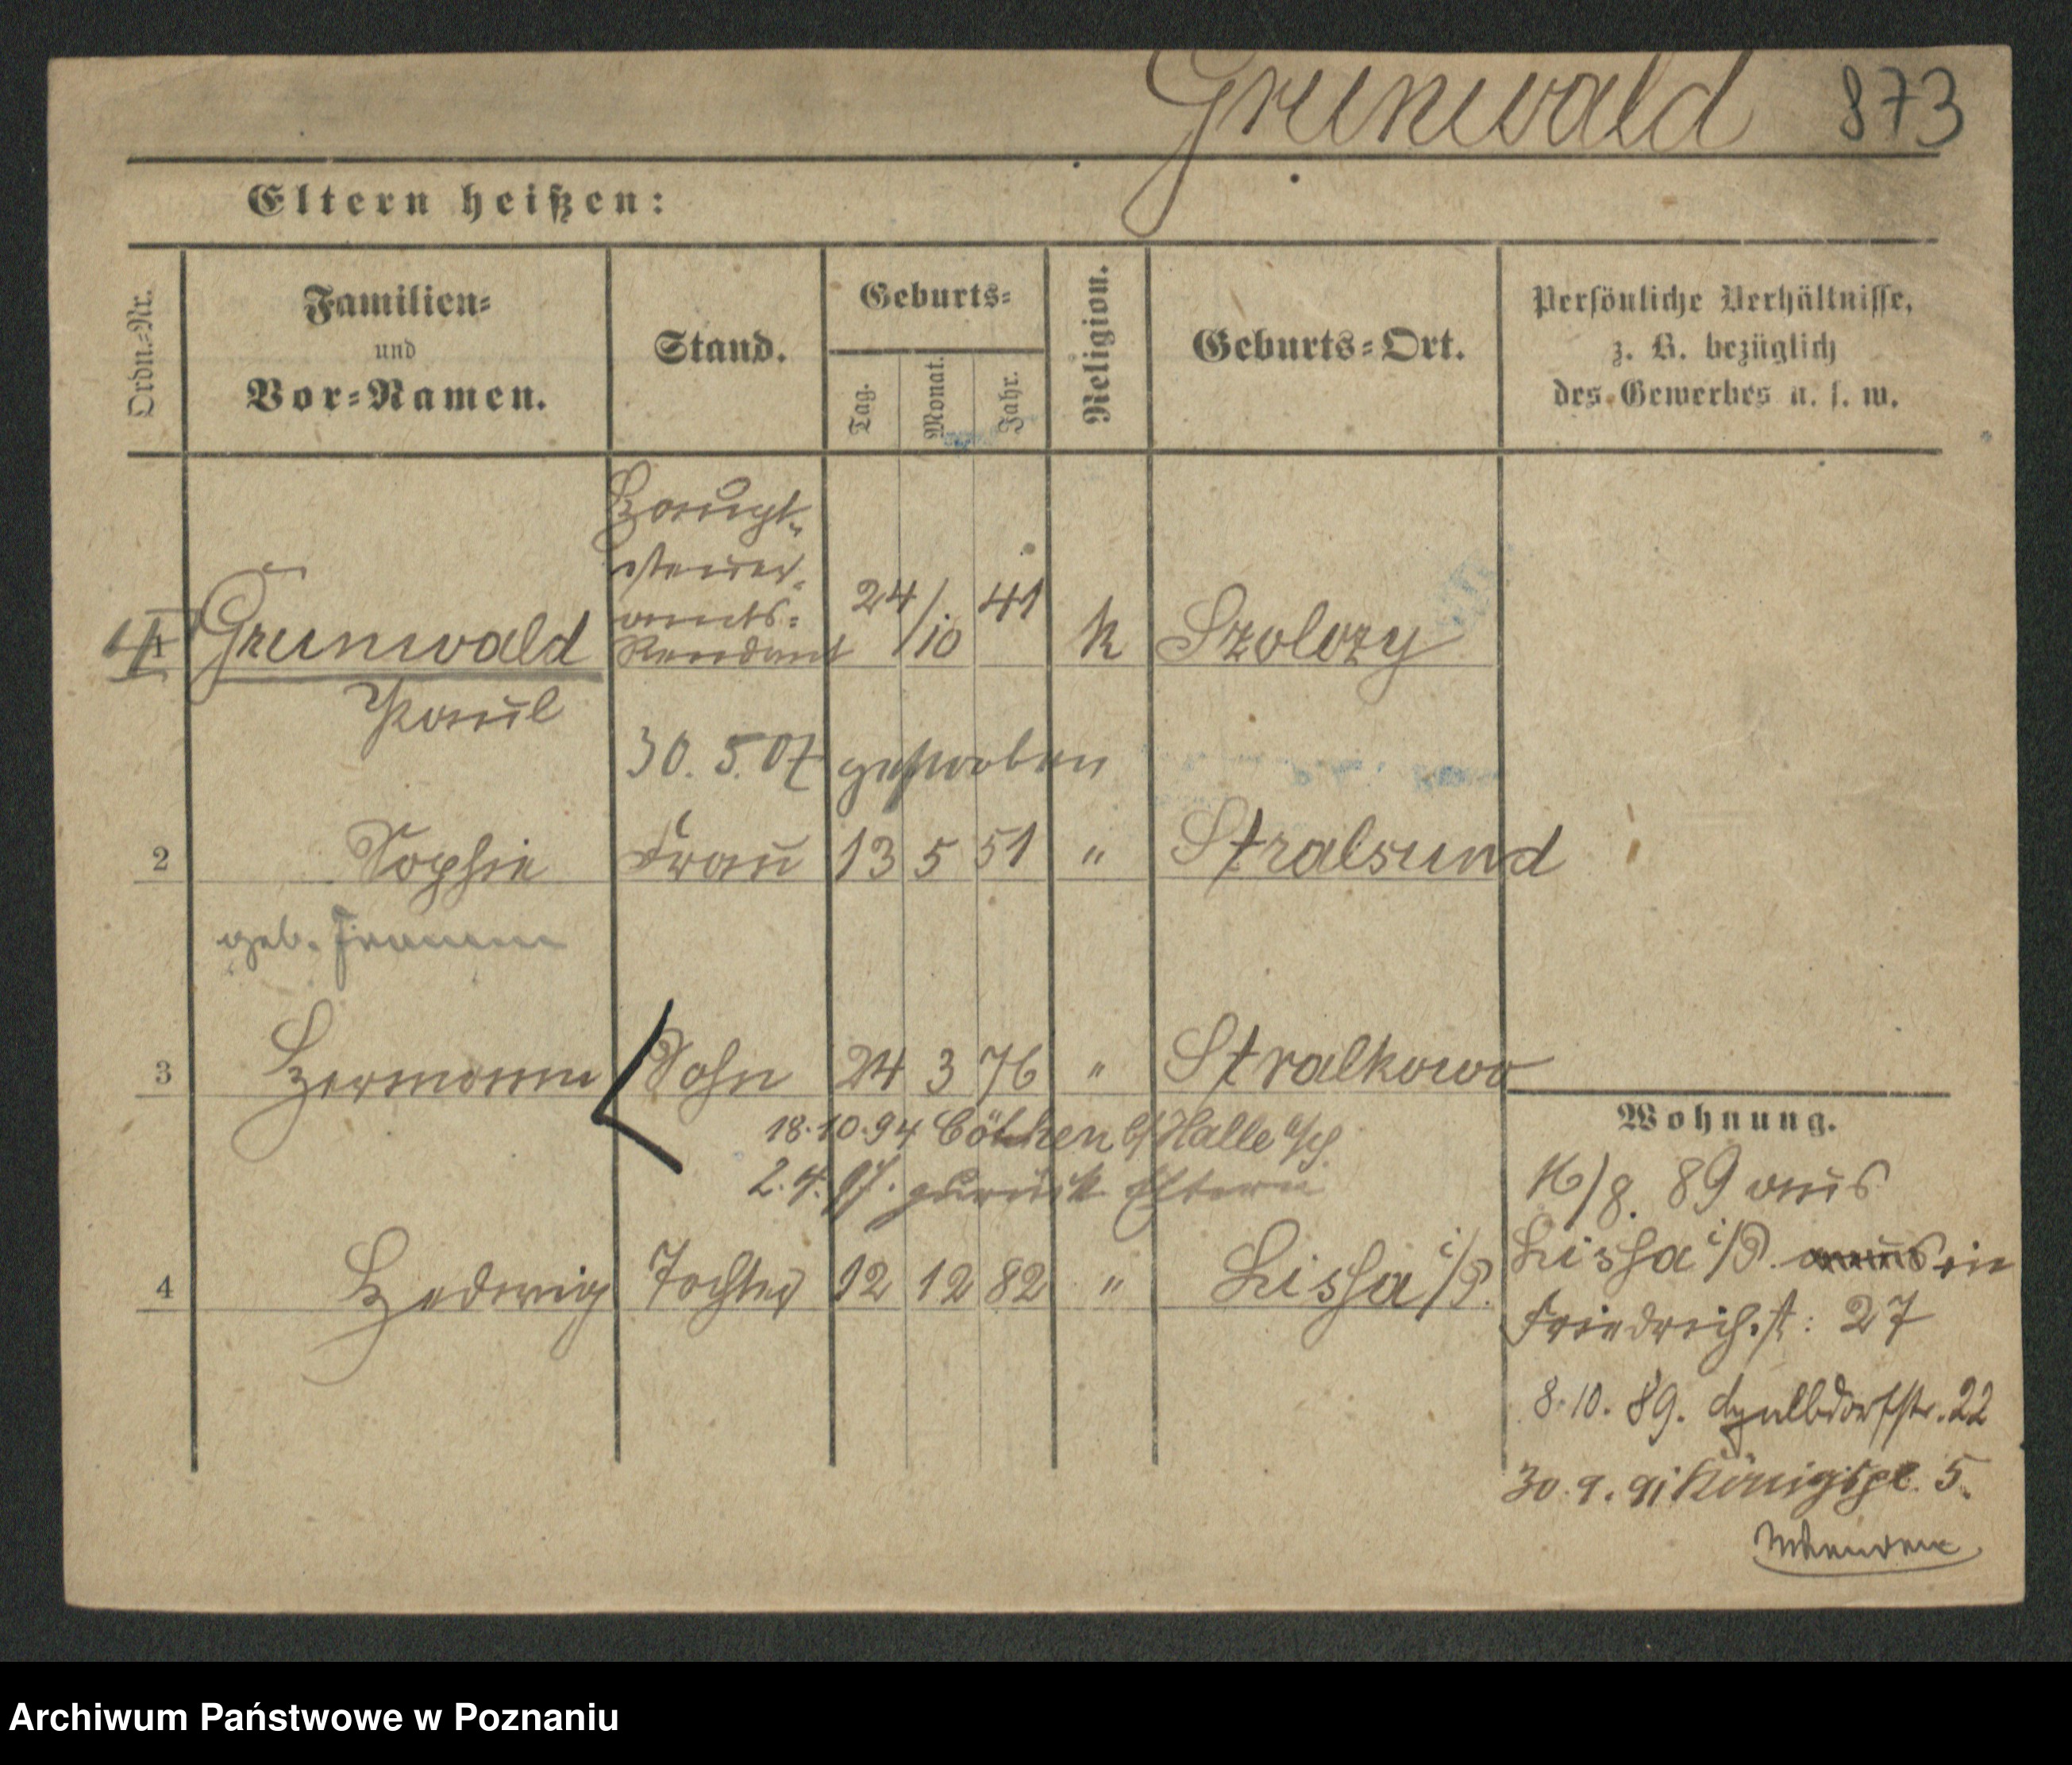 Grunwald 873
Eltern heißen:
Ordn.-Nr. Familien- und Vor-Namen. Stand. Geburts- Tag. Monat. Jahr. Religion. Geburts-Ort. Persönliche Verhältnisse, z. B. bezüglich des Gewerbes u. s. w.
Haupt-
steuer-
amts-
1 Grunwald Rendant 24/10 41 k Szolozy
Paul
30. 5. 07 gestorben
2 Sophie Frau 13 5 51 " Stralsund
geb. Fromm
3 Hermann Sohn 24 3 76 " Stralkowo
18.10.94 Cöthen b/ Halle a/S
2. 4. 97. zurück Eltern
4 Hedwig Tochter 12 12 82 " Lissa i/P.
Wohnung.
16/8. 89 aus
Lissa i/P. in
Friedrichst: 27
8.10.89. 22
30.9.91 Königspl. 5.
Archiwum Państwowe w Poznaniu